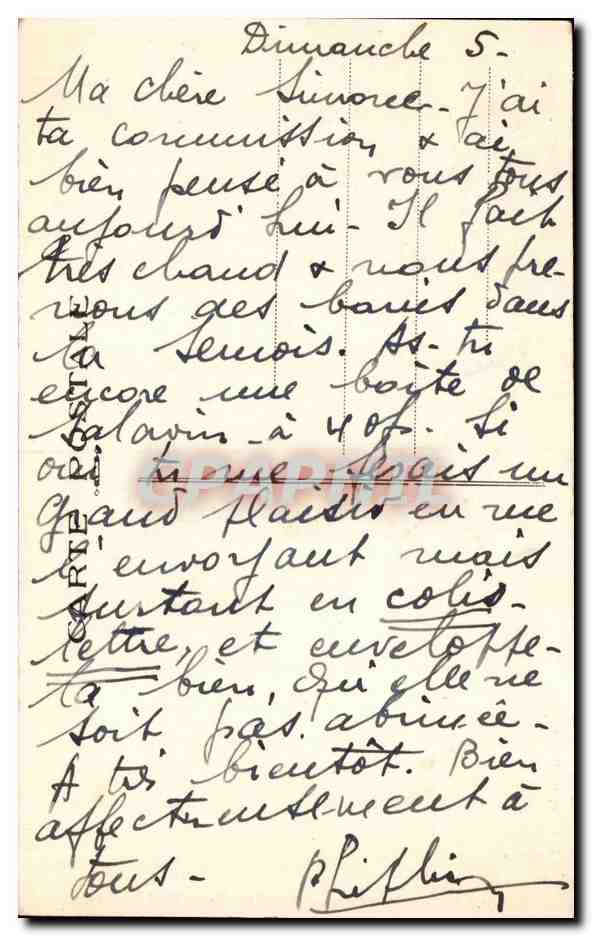 Dimanche 5-
Ma chère Simone. J'ai
ta commission & ai
bien pensé à vous tous
aujourd'hui - Il fait
très chaud & nous pre-
nons des bains dans
la Semois. As-tu
encore une boîte de
à 40f. Si
oui tu me ferais un
grand plaisir en me
l'envoyant mais
surtout en colis-
lettre, et enveloppe-
la bien, qu'elle ne
soit pas abimée-
A très bientôt. Bien
affectueusement à
tous-
CARTE POSTALE
CPAPHIL